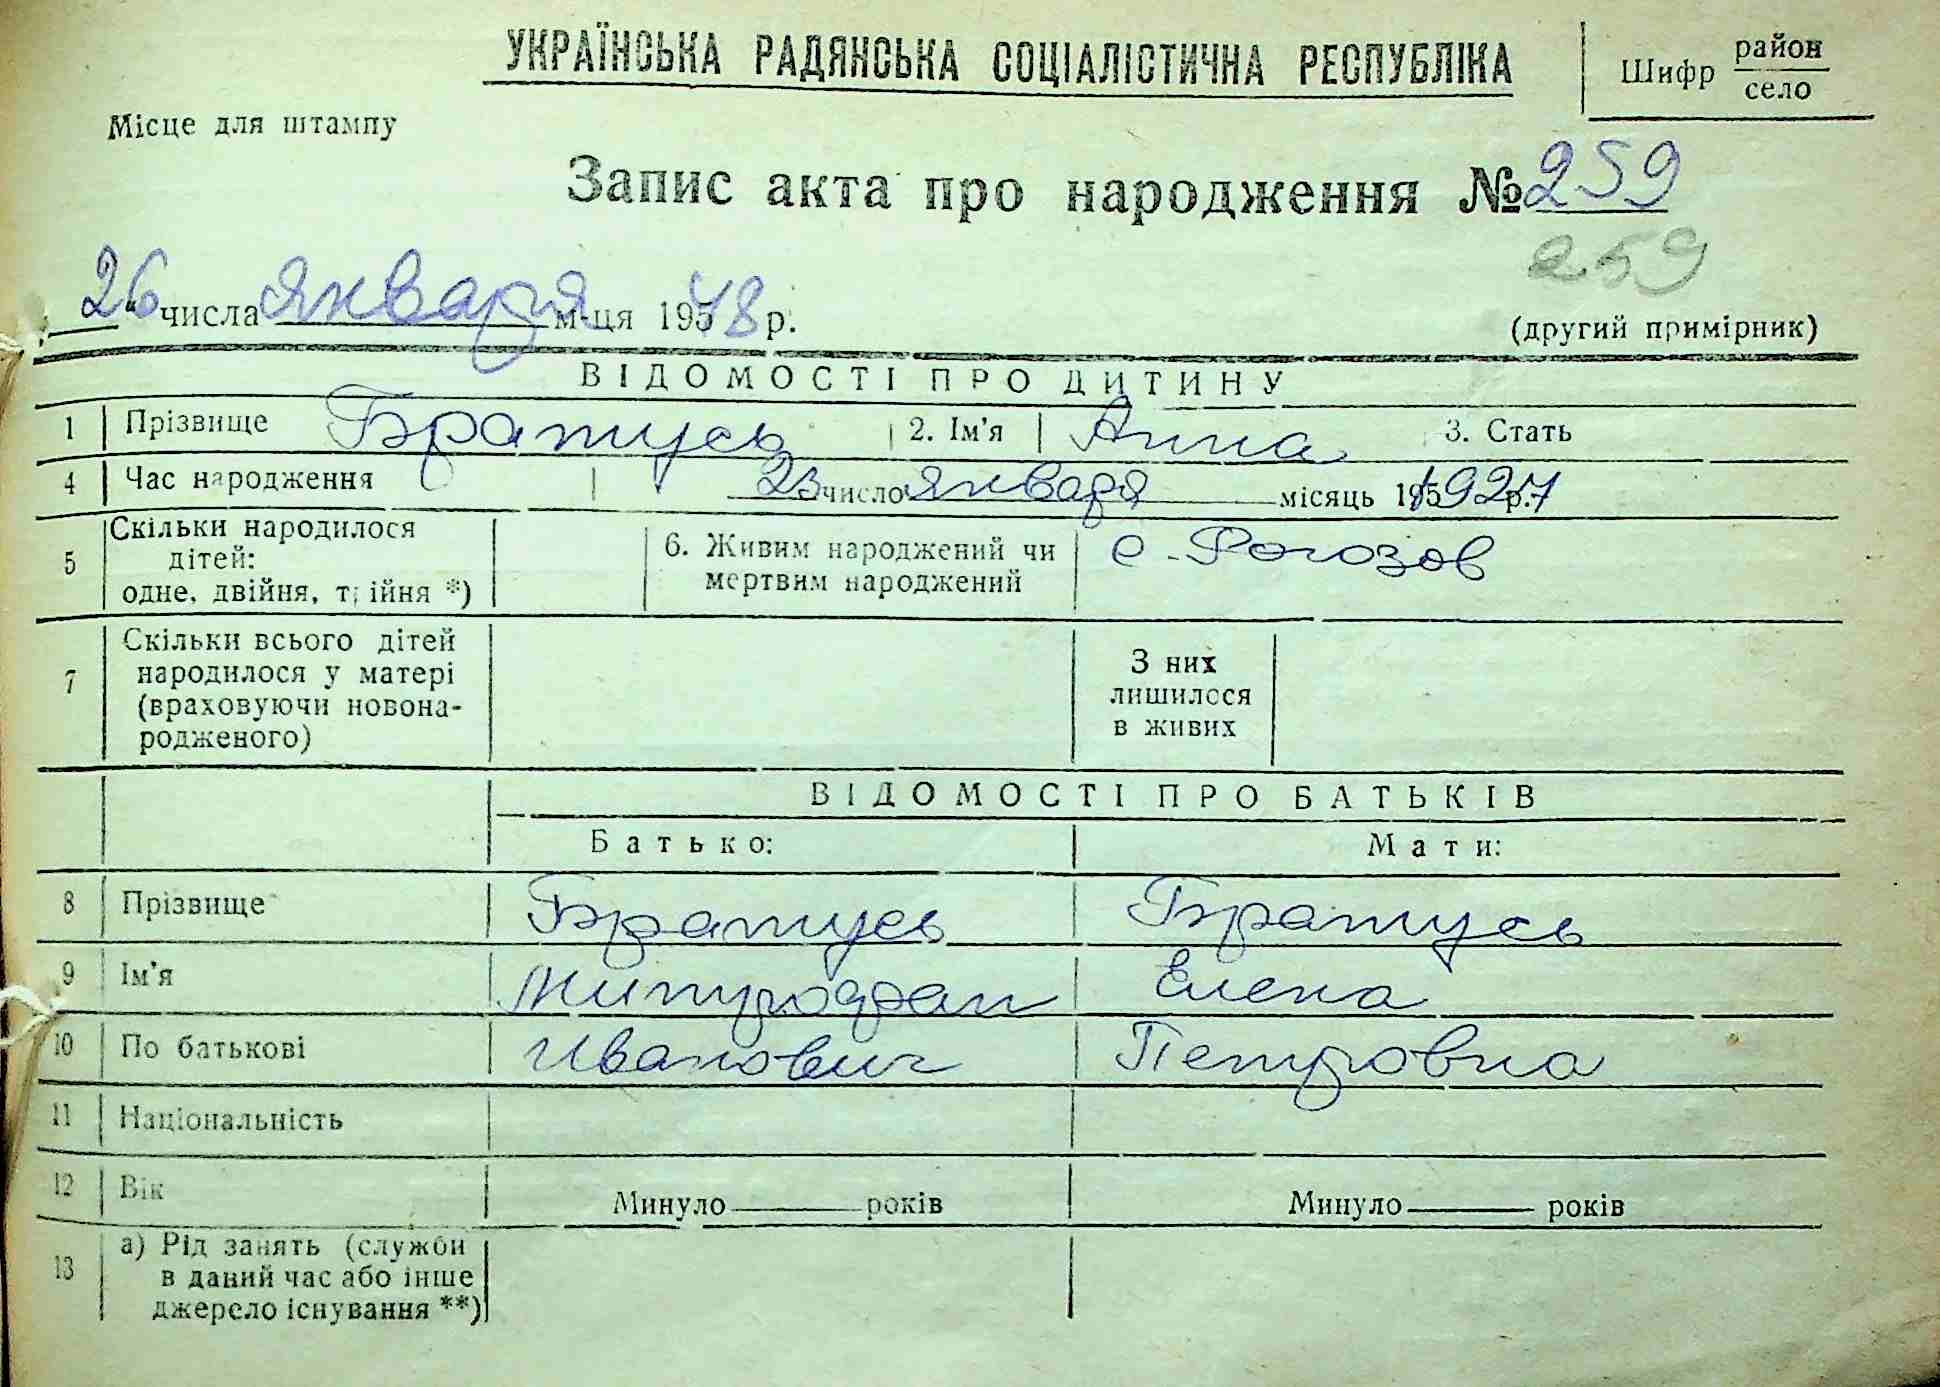 УКРАЇНСЬКА РАДЯНСЬКА СОЦІАЛІСТИЧНА РЕСПУБЛІКА
Шифр район
село
Місце для штампу
Запис акта про народження № 259
259
26 числа января м-ця 195 48 р.
(другий примірник)
ВІДОМОСТІ ПРО ДИТИНУ
1 Прізвище Братусь 2. Ім'я Анна 3. Стать
4 Час народження 23 число января місяць 195 1927 р.
5 Скільки народилося дітей: одне, двійня, трійня *) 6. Живим народжений чи мертвим народжений с. Рогозов
7 Скільки всього дітей народилося у матері (враховуючи новонародженого) З них лишилося в живих
ВІДОМОСТІ ПРО БАТЬКІВ
Батько: Мати:
8 Прізвище Братусь Братусь
9 Ім'я Митрофан Елена
10 По батькові Иванович Петровна
11 Національність
12 Вік Минуло років Минуло років
13 а) Рід занять (служби
в даний час або інше
джерело існування **)